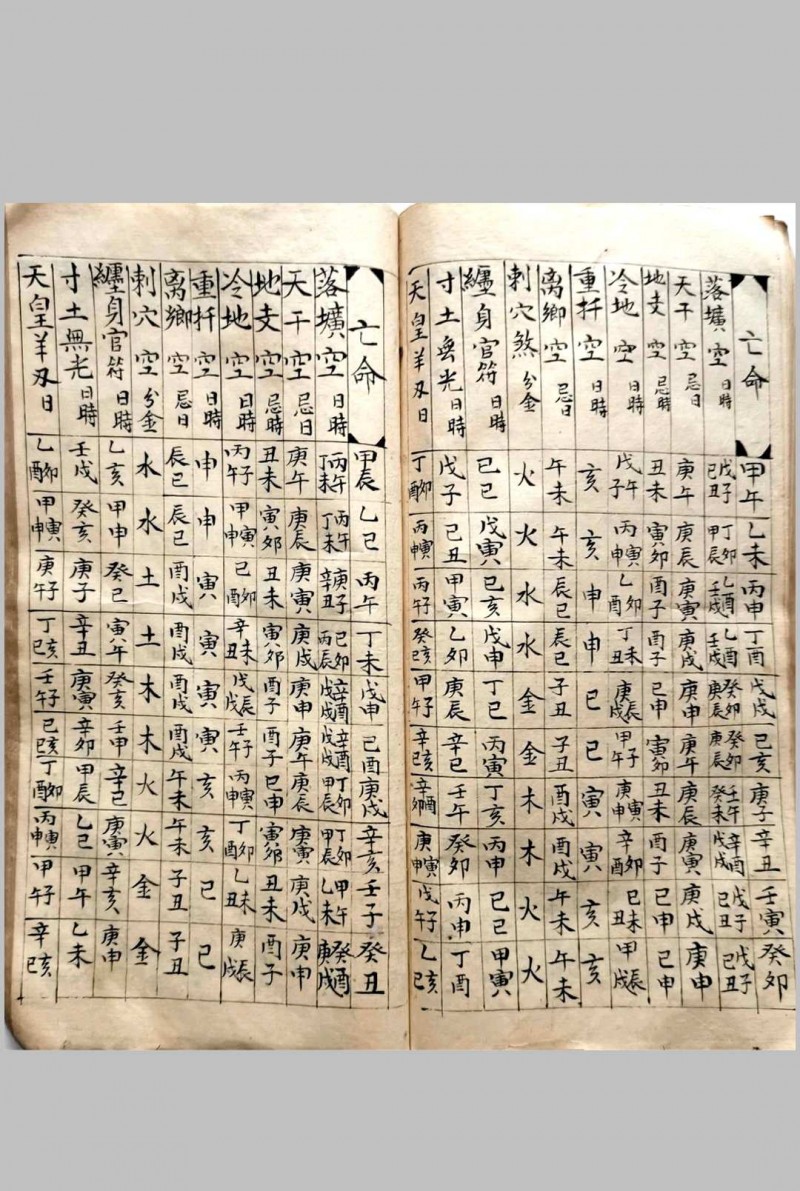 亡命 甲午 乙未 丙申 丁酉 戊戌 己亥 庚子 辛丑 壬寅 癸卯
落壙空日時 戊子己丑 丁卯甲辰 乙酉壬戌 乙酉壬戌 癸卯庚辰 癸卯庚辰 壬午癸未 辛酉戊戌 戊子己丑 戊子己丑
天干空忌日 庚午 庚辰 庚寅 庚戌 庚申 庚午 庚辰 庚寅 庚戌 庚申
地支空忌時 丑未 寅卯 酉子 酉子 巳申 寅卯 丑未 酉子 巳申 巳申
冷地空日時 戊午子 丙寅申 乙卯酉 丁未丑 庚辰戌 甲午子 庚寅申 辛卯酉 己未丑 甲辰戌
重扦空日時 亥 亥 申 申 巳 巳 寅 寅 亥 亥
离鄉空忌日 午未 午未 辰巳 辰巳 子丑 子丑 酉戌 酉戌 午未 午未
刺穴煞分金 火 火 水 水 金 金 木 木 火 火
纏身官符日時 己巳 戊寅 己亥 戊申 丁巳 丙寅 丁亥 丙申 己巳 甲寅
寸土無光日時 戊子 己丑 甲寅 乙卯 庚辰 辛巳 壬午 癸卯 丙申 丁酉
天皇羊刃日 丁卯酉 丙寅申 丙午子 癸巳亥 甲午子 辛巳亥 辛卯酉 庚寅申 戊午子 乙巳亥
亡命 甲辰 乙巳 丙午 丁未 戊申 己酉 庚戌 辛亥 壬子 癸丑
落壙空日時 丙午丁未 丙午丁未 庚子辛丑 己卯丙辰 辛酉戊戌 辛酉戊戌 丁卯甲辰 丁卯甲辰 甲午乙未 癸酉庚戌
天干空忌日 庚午 庚辰 庚寅 庚戌 庚申 庚午 庚辰 庚寅 庚戌 庚申
地支空忌時 丑未 寅卯 丑未 寅卯 酉子 酉子 巳申 寅卯 丑未 酉子
冷地空日時 丙午子 甲寅申 己卯酉 辛未丑 戊辰戌 壬午子 丙寅申 丁卯酉 乙未丑 庚辰戌
重扦空日時 申 申 寅 寅 寅 寅 亥 亥 巳 巳
离鄉空忌日 辰巳 辰巳 酉戌 酉戌 酉戌 酉戌 午未 午未 子丑 子丑
刺穴空分金 水 水 土 土 木 木 火 火 金 金
纏身官符日時 乙亥 甲申 癸巳 寅午 癸亥 壬申 辛巳 庚寅 辛亥 庚申
寸土無光日時 壬戌 癸亥 庚子 辛丑 庚寅 辛卯 甲辰 乙巳 甲午 乙未
天皇羊刃日 乙卯酉 甲寅申 庚午子 丁巳亥 壬午子 己巳亥 丁卯酉 丙寅申 甲午子 辛巳亥